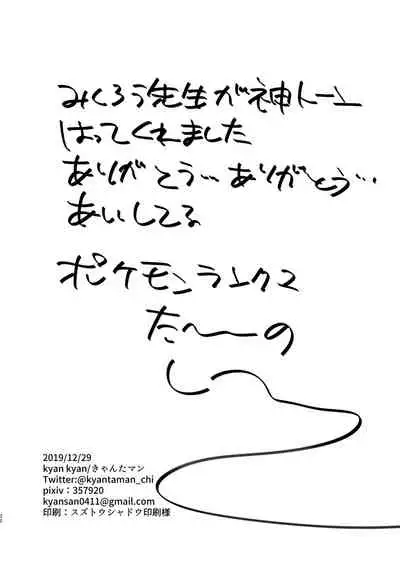 みくろう先生が神トーン
はってくれました
ありがとう…ありがとう…
あいしてる
ポケモンランクマ
た〜〜の
しーっ
2019/12/29
kyan kyan/きゃんたマン
Twitter:@kyantaman_chi
pixiv：357920
kyansan0411@gmail.com
印刷：スズトウシャドウ印刷様